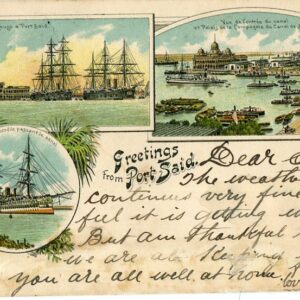 à Port Saïd.
Vue de l'entrée du canal
et Palais de la Compagnie du Canal de
Greetings
from Port Said.
Dear
The weath
continues very fine
feel it is going
But am thankful
we are all keeping
you are all well at home.